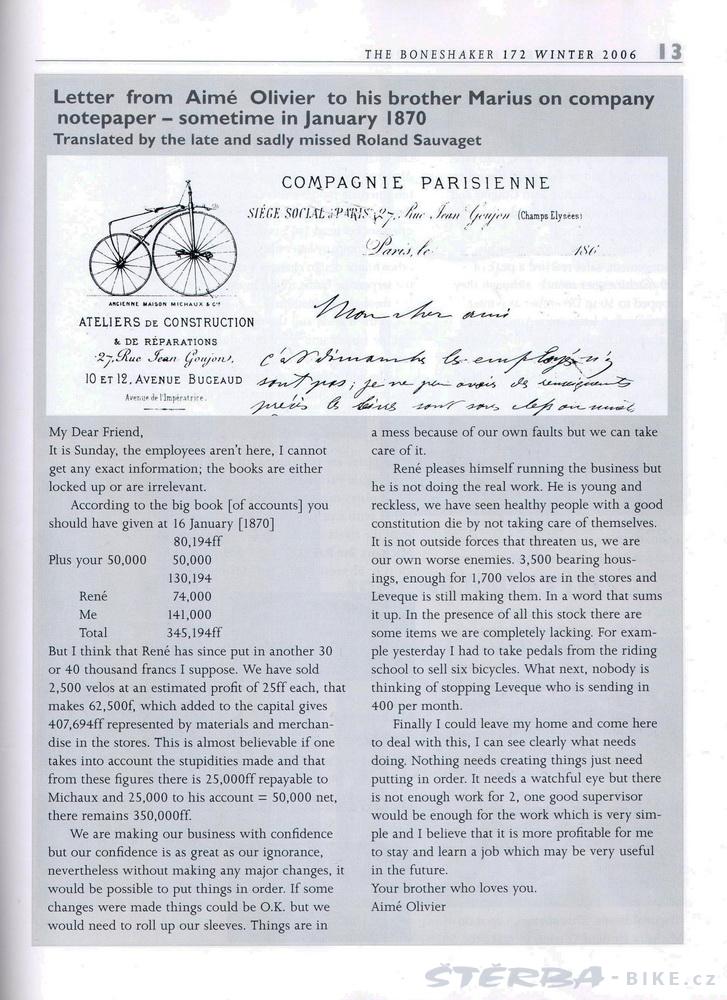 THE BONESHAKER 172 WINTER 2006 13
Letter from Aimé Olivier to his brother Marius on company
notepaper – sometime in January 1870
Translated by the late and sadly missed Roland Sauvaget
COMPAGNIE PARISIENNE
SIÉGE SOCIAL à PARIS, 27, Rue Jean Goujon (Champs Elysées)
Paris, le 186
ANCIENNE MAISON MICHAUX & Cie
ATELIERS DE CONSTRUCTION
& DE RÉPARATIONS
27, Rue Jean Goujon,
10 ET 12, AVENUE BUGEAUD
Avenue de l'Impératrice.
Mon cher ami
c'est dimanche les employés n'y
sont pas; je ne puis avoir des renseignements
précis les livres sont sous clef ou
My Dear Friend,
It is Sunday, the employees aren't here, I cannot
get any exact information; the books are either
locked up or are irrelevant.
According to the big book [of accounts] you
should have given at 16 January [1870]
80,194ff
Plus your 50,000 50,000
130,194
René 74,000
Me 141,000
Total 345,194ff
But I think that René has since put in another 30
or 40 thousand francs I suppose. We have sold
2,500 velos at an estimated profit of 25ff each, that
makes 62,500f, which added to the capital gives
407,694ff represented by materials and merchan-
dise in the stores. This is almost believable if one
takes into account the stupidities made and that
from these figures there is 25,000ff repayable to
Michaux and 25,000 to his account = 50,000 net,
there remains 350,000ff.
We are making our business with confidence
but our confidence is as great as our ignorance,
nevertheless without making any major changes, it
would be possible to put things in order. If some
changes were made things could be O.K. but we
would need to roll up our sleeves. Things are in
a mess because of our own faults but we can take
care of it.
René pleases himself running the business but
he is not doing the real work. He is young and
reckless, we have seen healthy people with a good
constitution die by not taking care of themselves.
It is not outside forces that threaten us, we are
our own worse enemies. 3,500 bearing hous-
ings, enough for 1,700 velos are in the stores and
Leveque is still making them. In a word that sums
it up. In the presence of all this stock there are
some items we are completely lacking. For exam-
ple yesterday I had to take pedals from the riding
school to sell six bicycles. What next, nobody is
thinking of stopping Leveque who is sending in
400 per month.
Finally I could leave my home and come here
to deal with this, I can see clearly what needs
doing. Nothing needs creating things just need
putting in order. It needs a watchful eye but there
is not enough work for 2, one good supervisor
would be enough for the work which is very sim-
ple and I believe that it is more profitable for me
to stay and learn a job which may be very useful
in the future.
Your brother who loves you.
Aimé Olivier
ŠTĚRBA-BIKE.cz